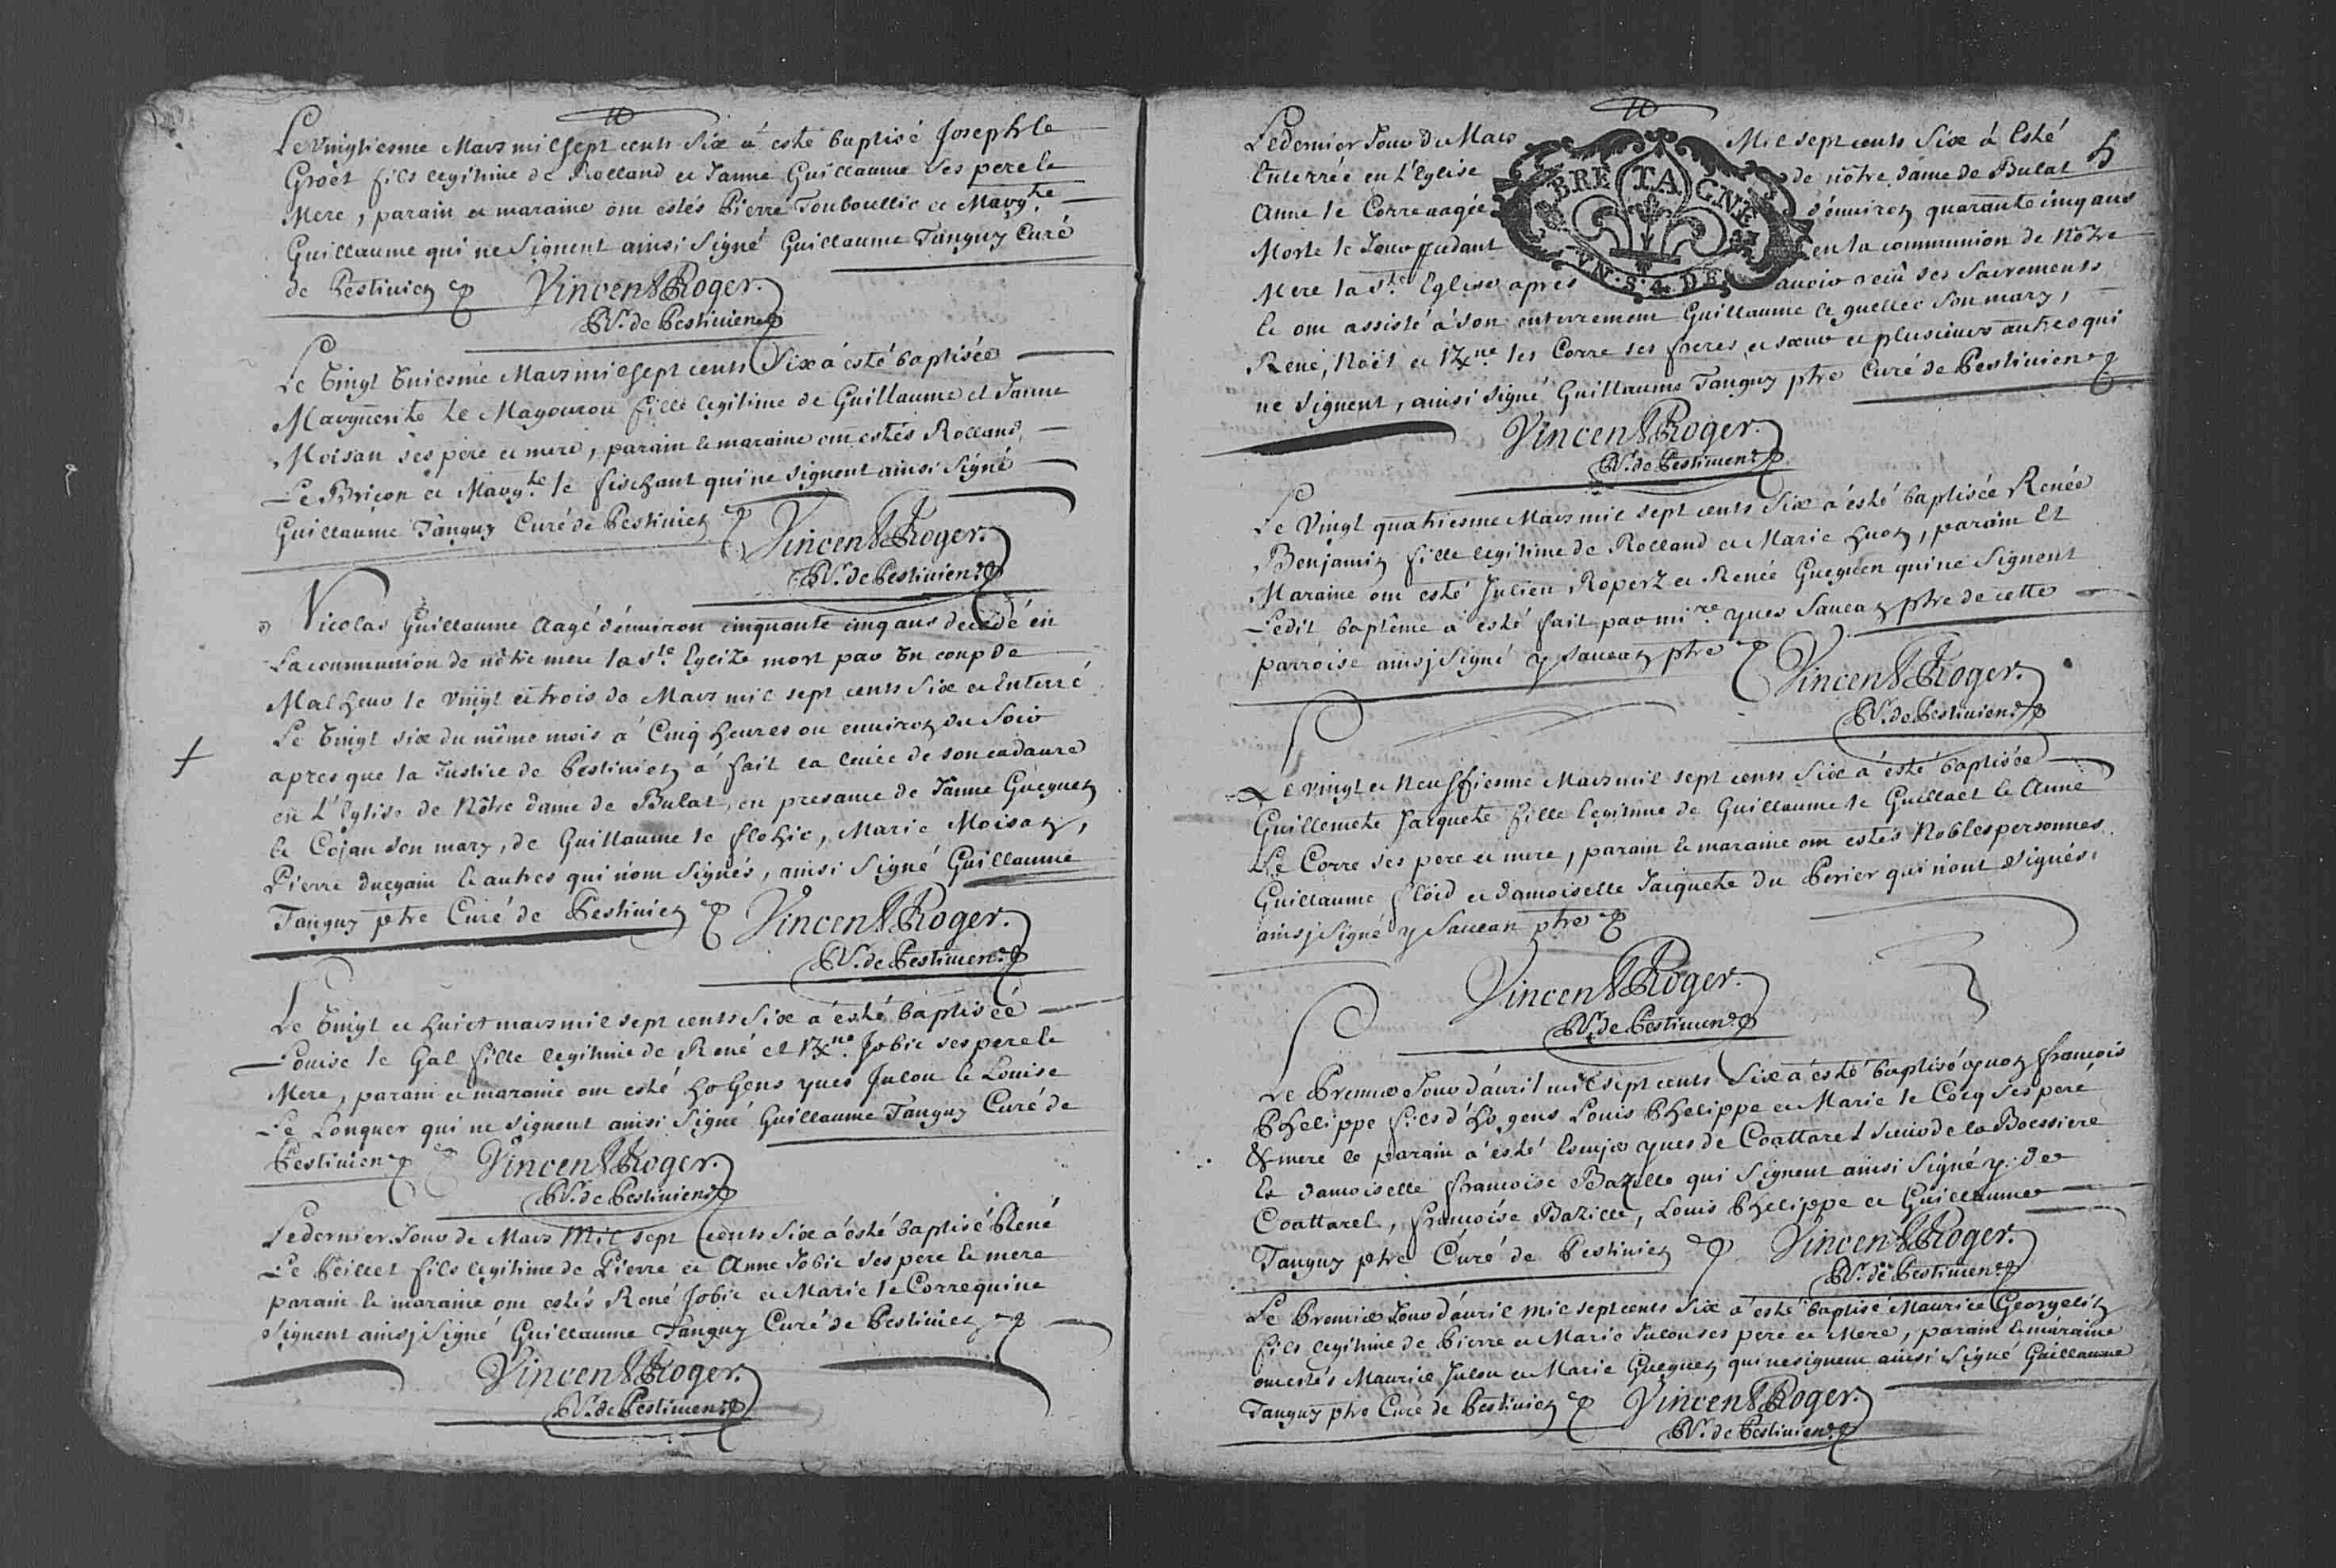 Le Vingtiesme Mars mil sept cents Six a esté baptisé Joseph le
Groët fils legitime de Rolland et Janne Guillaume Ses pere et
Mere, parain et maraine ont estés Pierre Toüboullic et Marg.te
Guillaume qui ne Signent ainsi Signé Guillaume Tanguy Curé
de Pestivien Vincent Roger.
de Pestivien
Le Vingt Uniesme Mars mil sept cents Six a esté baptisée
Marguerite Le Magourou fille legitime de Guillaume et Janne
Moisan ses pere et mere, parain et maraine ont estés Rolland
Le Bricon et Marg.te le fischant qui ne signent ainsi Signé
Guillaume Tanguy Curé de Pestivien Vincent Roger.
de Pestivien
Nicolas Guillaume aagé d'environ cinquante cinq ans decedé en
La communion de nôtre mere la s.te Eglize mort par Un coup de
Malheur le vingt et trois de Mars mil sept cents Six et Enterré
Le Vingt six du même mois a Cinq heures ou environ du Soir
apres que la Justice de Pestivien a fait la levée de son cadavre
en L'Eglise de Nôtre dame de Bulat, en presance de Janne Gueguen
le Cojan son mary, de Guillaume le flohic, Marie Moisan,
Pierre duegain et autres qui n'ont Signés, ainsi Signé Guillaume
Tanguy ptre Curé de Pestivien Vincent Roger.
de Pestivien
Le Vingt et huict mars mil sept cents Six a esté baptisée
Louise le Gal fille legitime de René et Jobic ses pere et
Mere, parain et maraine ont esté Yves Julou et Louise
Le Longuer qui ne Signent ainsi Signé Guillaume Tanguy Curé de
Pestivien Vincent Roger.
de Pestivien
Le dernier Jour de Mars Mil sept cents Six a esté baptisé René
Le Peillet fils legitime de Pierre et Anne Jobic ses pere et mere
parain et maraine ont estés René Jobic et Marie le Corre qui ne
Signent ainsj Signé Guillaume Tanguy Curé de Pestivien
Vincent Roger.
de Pestivien
Le dernier Jour de Mars Mil sept cents Six a Esté
Enterrée en L'Eglise de nôtre dame de Bulat
Anne le Corre aagée d'environ quarante cinq ans
Morte le Jour en la communion de Nôtre
Mere la s.te Eglise apres avoir reçû ses Sacrements
Et ont assisté a son enterrement Guillaume le quellec Son mary,
René, Noël et les Corre ses freres et sœur et plusieurs autres qui
ne signent, ainsi Signé Guillaume Tanguy ptre Curé de Pestivien
Vincent Roger.
de Pestivien
Le Vingt quatriesme Mars mil sept cents Six a esté baptisée Renée
Benjamin fille legitime de Rolland et Marie huon, parain Et
Maraine ont esté Julien Roperz et Renée Gueguen qui ne Signent
Ledit baptême a esté fait par Yves Saucan ptre de cette
parroise ainsj Signé y Saucan ptre Vincent Roger.
de Pestivien
Le vingt et Neuffiesme Mars mil sept cents Six a esté baptisée
Guillemete Jacquete fille legitime de Guillaume le Guillact et Anne
Le Corre ses pere et mere, parain et maraine ont estés Nobles personnes
Guillaume floid et damoiselle Jacquete du Perier qui n'ont Signés,
ainsj Signé y Saucan ptre
Vincent Roger.
de Pestivien
Le Premier Jour d'avril mil sept cents Six a esté baptisé François
Phelippe fils d' Louis Phelippe et Marie le Cocq ses pere
& mere le parain a esté Yves de Coattarel Sieur de la Boessiere
Et damoiselle Françoise Bazille qui Signent ainsi Signé y. de
Coattarel, Françoise Bazille, Louis Phelippe et Guillaume
Tanguy ptre Curé de Pestivien Vincent Roger.
de Pestivien
Le Premier Jour d'avril mil sept cents Six a esté baptisé Maurice Georgelin
fils legitime de Pierre et Marie Julou ses pere et Mere, parain et maraine
ont estés Maurice Julou et Marie Gueguen qui ne signent ainsi Signé Guillaume
Tanguy ptre Curé de Pestivien Vincent Roger.
de Pestivien
BRETAGNE
VN.S.4.DE.